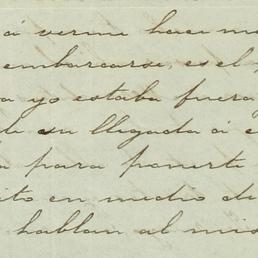 á verme hace me
embarcarse, es el
a yo estaba fuera
de su llegada á e
a para ponerte
ito en medio de
hablan al mis